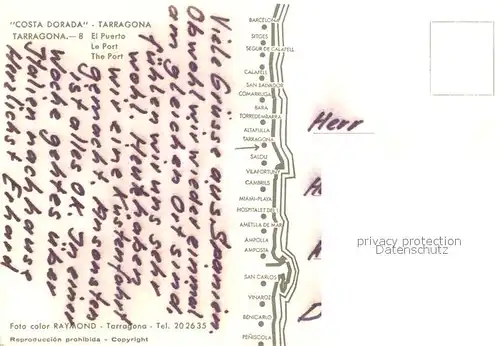 "COSTA DORADA" - TARRAGONA
TARRAGONA.— 8 El Puerto
Le Port
The Port
Viele Grüsse aus Spanien
Obwohl wir wieder einmal
am gleichen Ort sind
fühlen wir uns sehr
wohl. Heut haben
wir eine Küstenfahrt
gemacht. Pension
ist alles OK. In einer
Woche geht es über
Italien nach hause
Herzlichst Erhard
Foto color RAYMOND - Tarragona - Tel. 202635
Reproducción prohibida - Copyright
BARCELONA
SITGES
SEGUR DE CALAFELL
CALAFELL
SAN SALVADOR
COMARRUGA
BARA
TORREDEMBARRA
ALTAFULLA
TARRAGONA
SALOU
VILAFORTUNY
CAMBRILS
MIAMI-PLAYA
HOSPITALET DEL I.
AMETLLA DE MAR
AMPOLLA
AMPOSTA
SAN CARLOS
VINAROZ
BENICARLO
PEÑISCOLA
Herr
privacy protection
Datenschutz